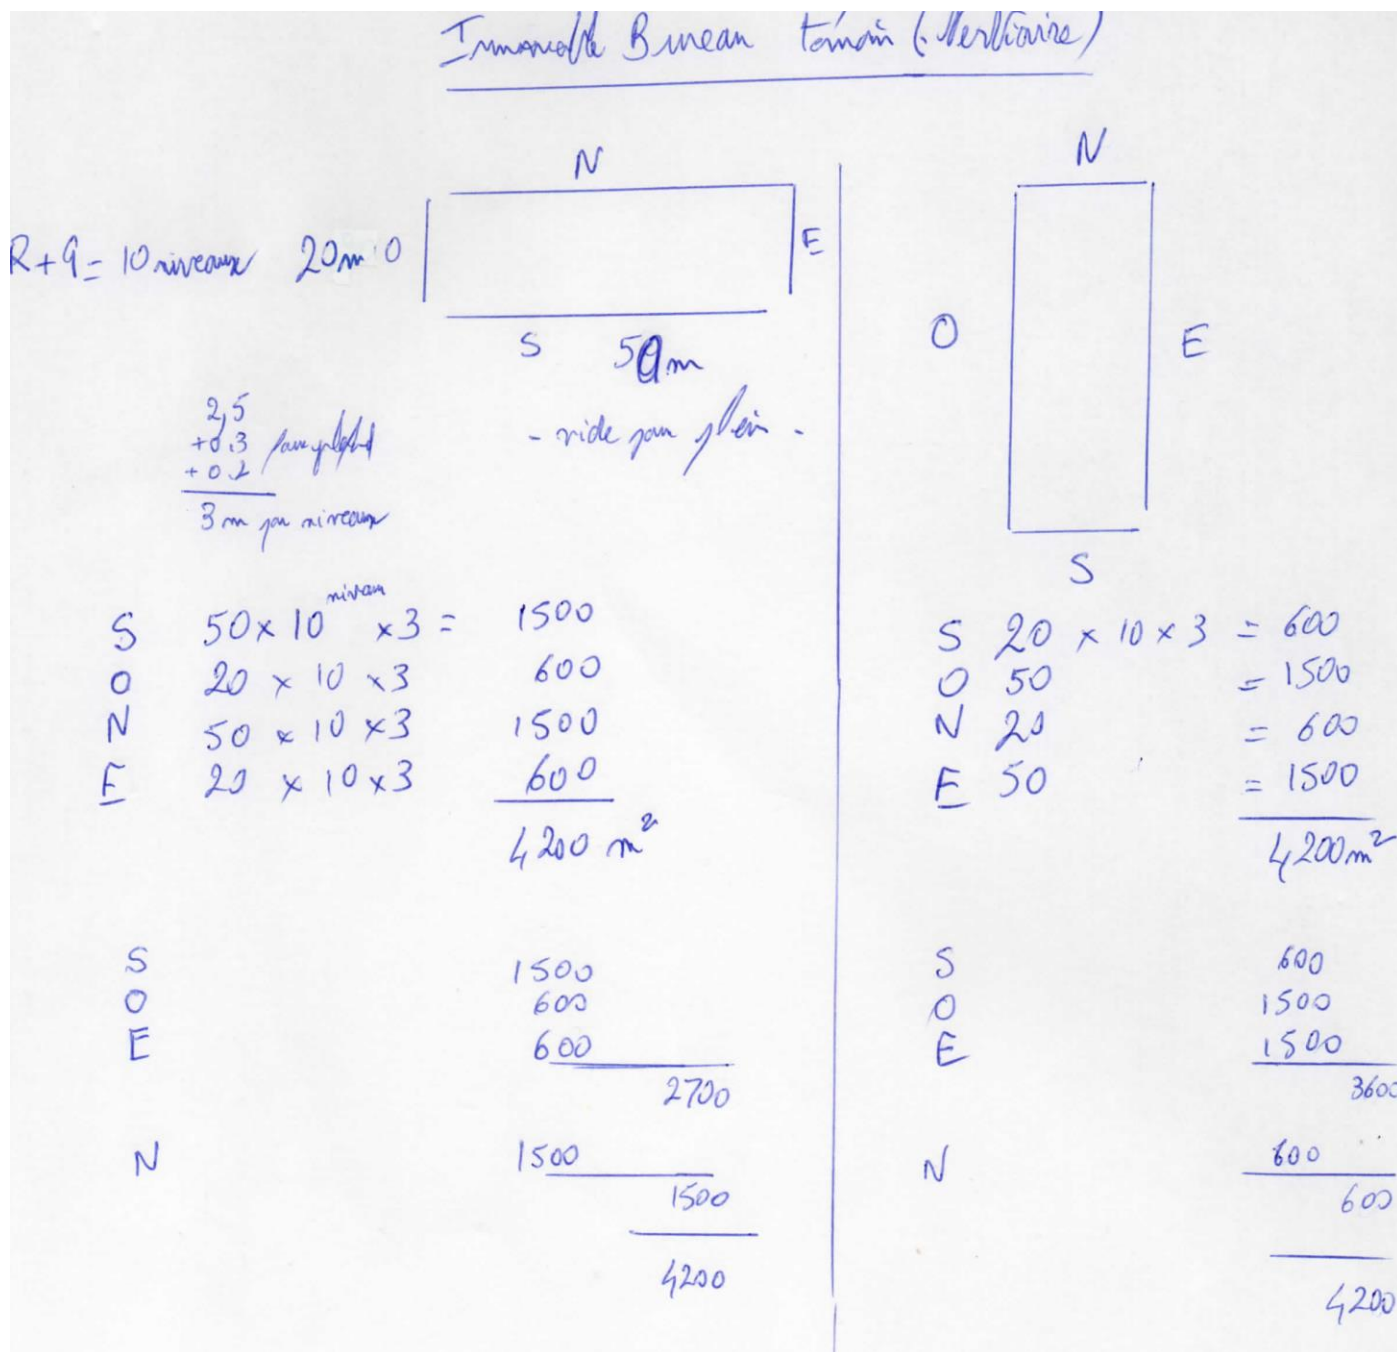 Immeuble Bureau témoin (Tertiaire)
N
R+9 = 10 niveaux 20m O
E
S 50m
2,5
+0,3 faux plafond
+0.2
3m par niveaux
- vide pour plein -
S 50 x 10 niveau x 3 = 1500
O 20 x 10 x 3 600
N 50 x 10 x 3 1500
E 20 x 10 x 3 600
4200 m²
S 1500
O 600
E 600
2700
N 1500
1500
4200
N
O
E
S
S 20 x 10 x 3 = 600
O 50 = 1500
N 20 = 600
E 50 = 1500
4200m²
S 600
O 1500
E 1500
3600
N 600
600
4200